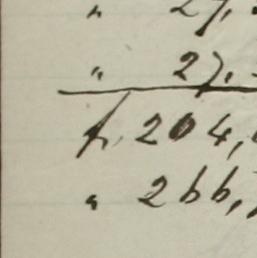 " 27,
" 27.
fr. 204,
" 266,